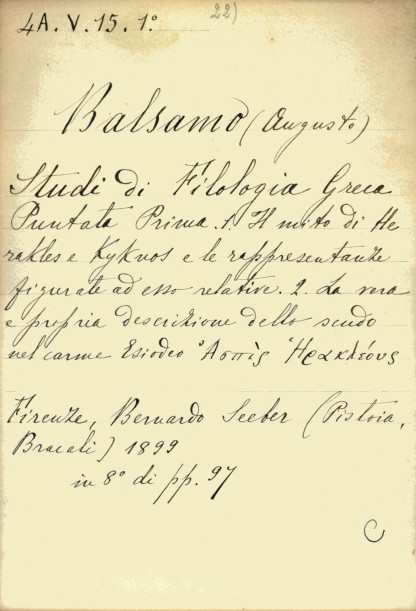 22)
4A. V. 15. 1.º
Balsamo (Augusto)
Studi di Filologia Greca
Puntata Prima. 1. Il mito di He
rakles e Kyknos e le rappresentanze
figurate ad esso relative. 2. La vera
e propria descrizione dello scudo
nel carme Esiodeo Ἀσπὶς Ἡρακλέους
Firenze, Bernardo Seeber (Pistoia,
Bracali) 1899
in 8º di pp. 97
C